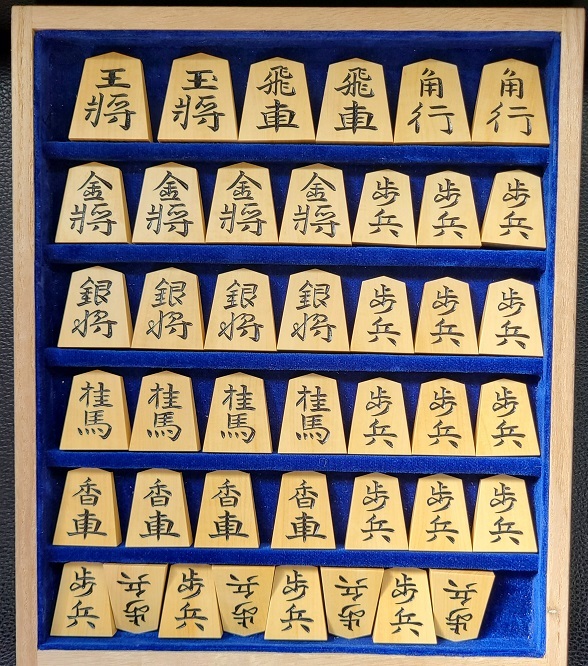 王将 玉将 飛車 飛車 角行 角行
金将 金将 金将 金将 歩兵 歩兵 歩兵
銀将 銀将 銀将 銀将 歩兵 歩兵 歩兵
桂馬 桂馬 桂馬 桂馬 歩兵 歩兵 歩兵
香車 香車 香車 香車 歩兵 歩兵 歩兵
歩兵 歩兵 歩兵 歩兵 歩兵 歩兵 歩兵 歩兵